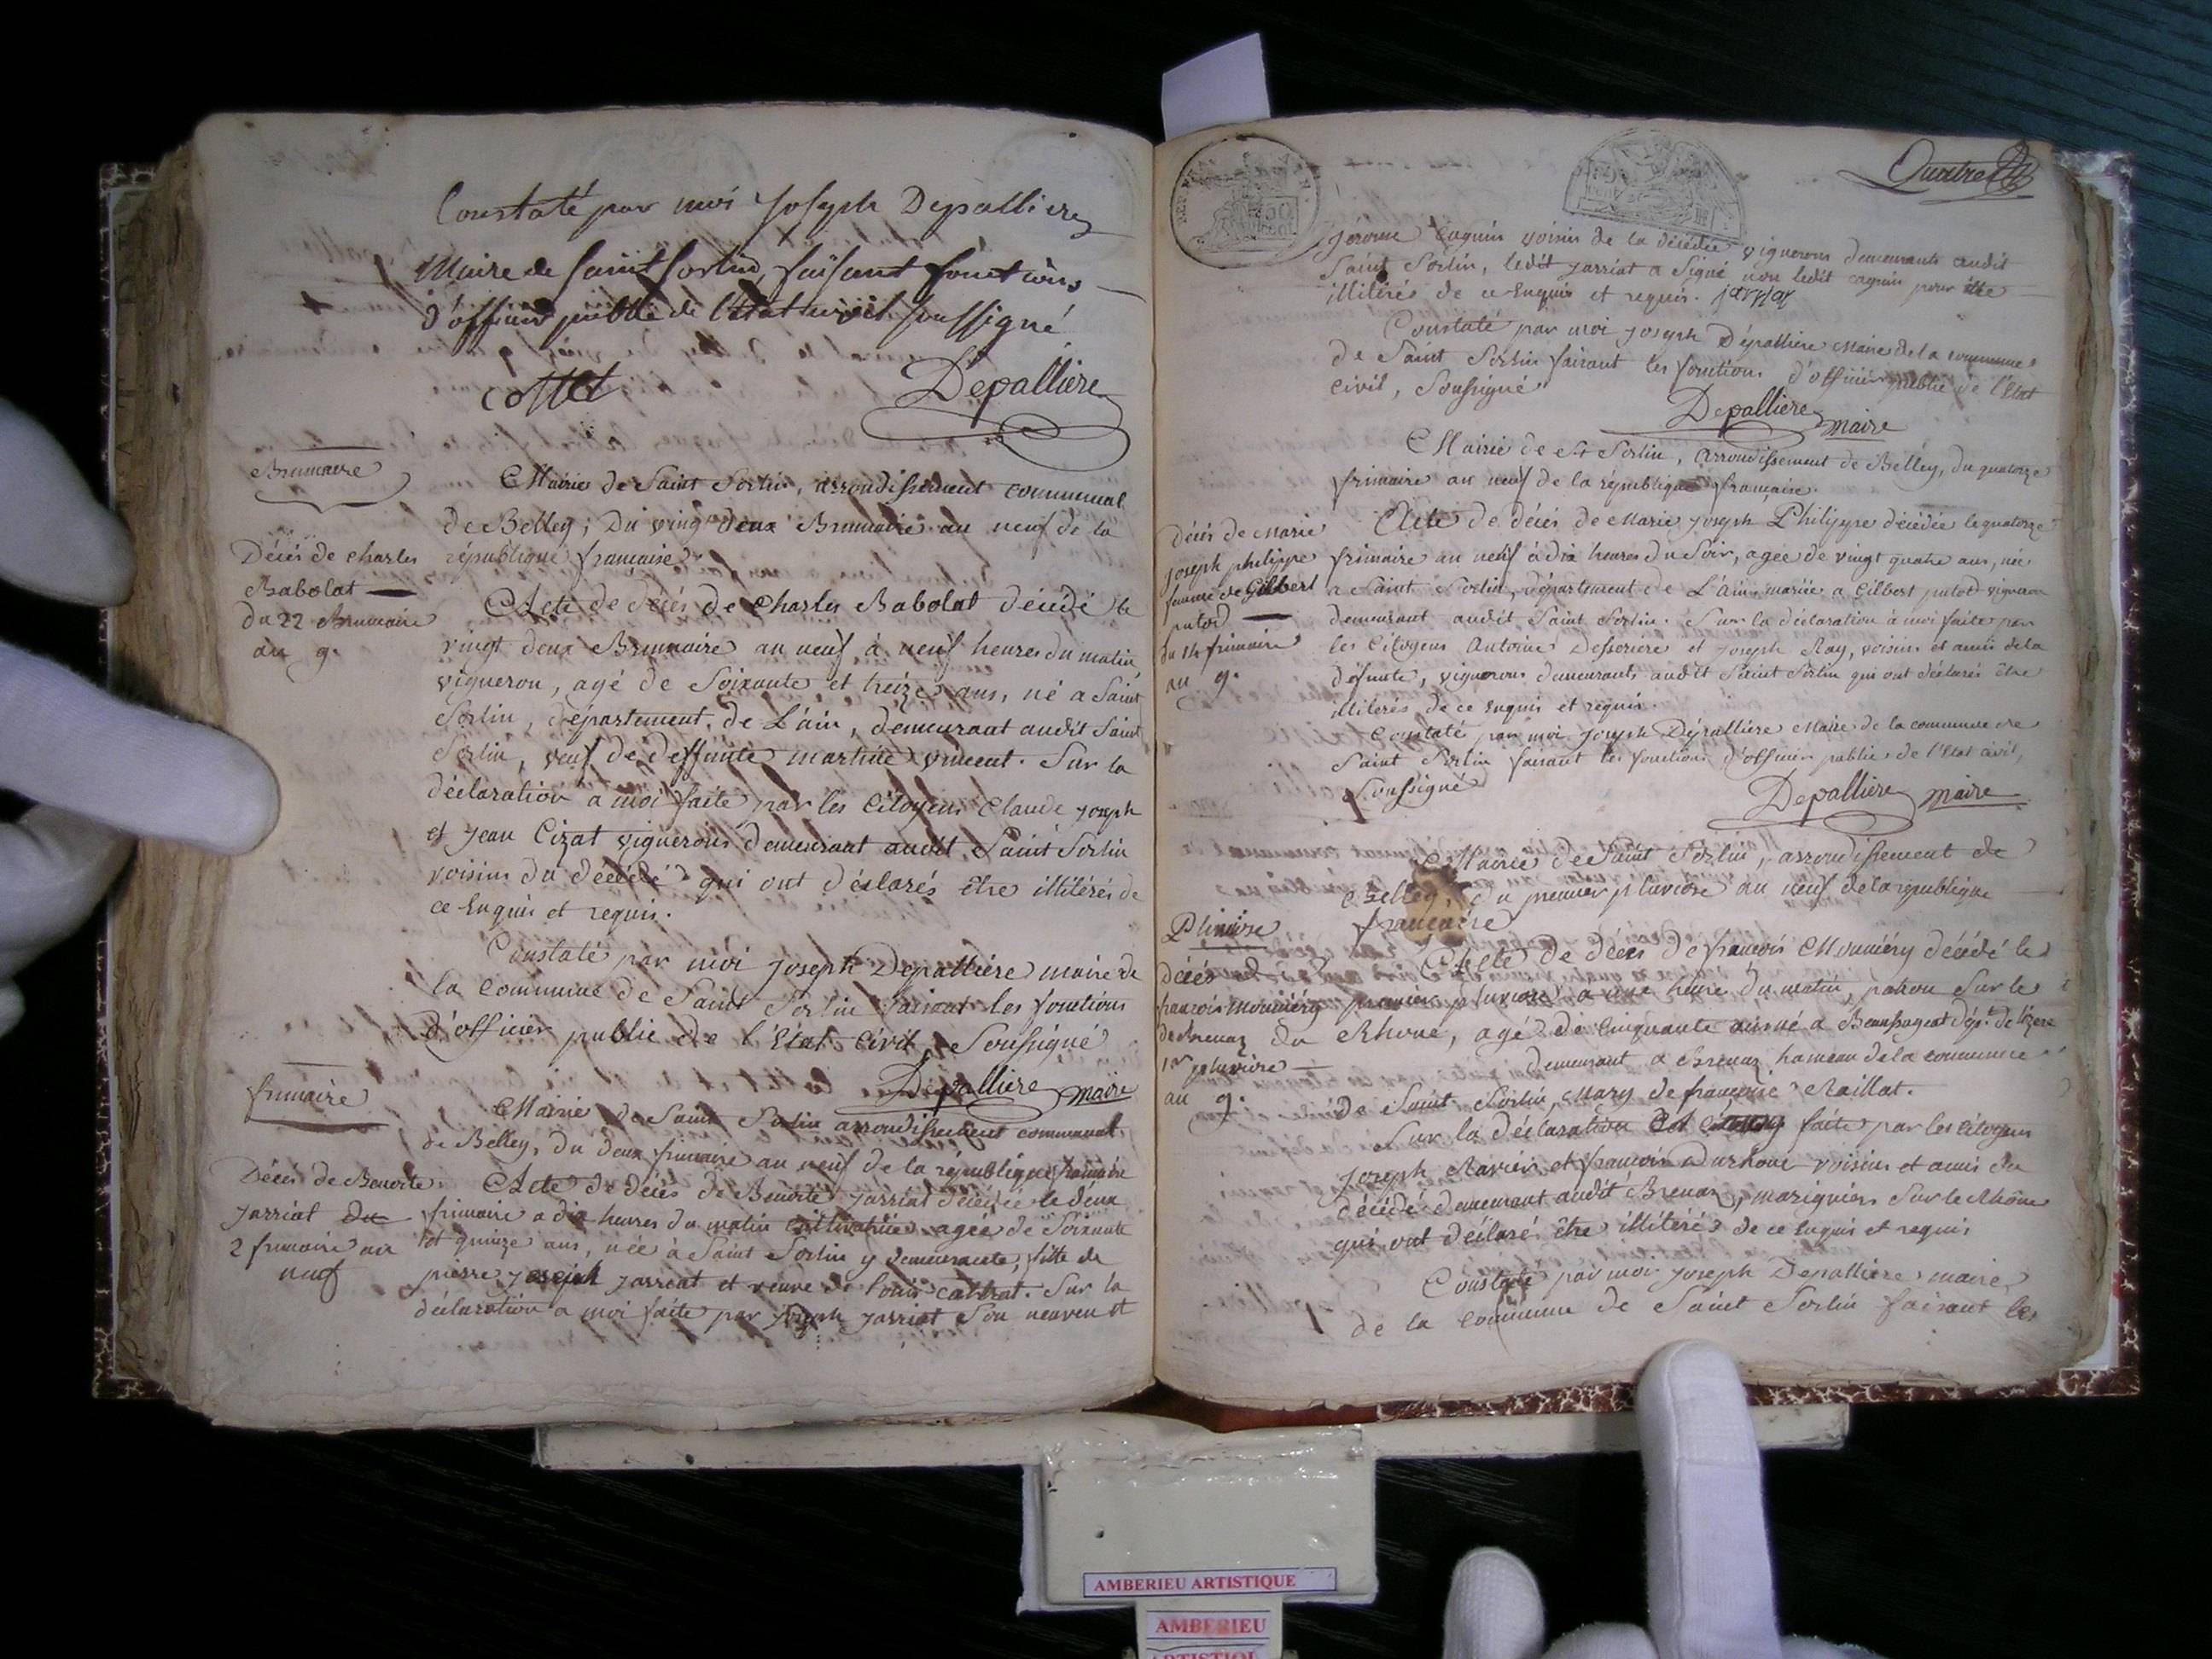 Constaté par moi Joseph Depalliere
Maire de Saint Sorlin, faisant fonctions
d'officier public de l'Etat civil soussigné
cottet Depalliere
Brumaire
Mairie de Saint Sorlin, arrondissement communal
de Belley, du vingt deux Brumaire an neuf de la
république française
Décés de charles
Babolat
du 22 Brumaire
an 9.
Acte de décés de Charles Babolat décédé le
vingt deux Brumaire an neuf à neuf heures du matin
vigneron, agé de Soixante et treize ans, né a Saint
Sorlin, département de L'ain, demeurant audit Saint
Sorlin, veuf de deffunte martine vincent. Sur la
déclaration a moi faite par les Citoyens Claude joseph
et jean Cizat vignerons demeurant audit Saint Sorlin
voisins du décédé qui ont déclarés être illitérés de
ce Enquis et requis.
Constaté par moi joseph Depalliére maire de
la commune de Saint Sorlin faisant les fonctions
d'officier public de l'Etat Civil, Soussigné
Depalliere maire
frimaire
Mairie de Saint Sorlin arrondissement communal
de Belley, du deux frimaire an neuf de la république française
Décés de Benoite
jarriat du
2 frimaire an
neuf
Acte de décés de Benoite jarriat décédée le deux
frimaire a dix heures du matin cultivatrice agée de Soixante
et quinze ans, née à Saint Sorlin y demeurante, fille de
pierre joseph jarreat et veuve de louis Sur la
déclaration a moi faite par joseph jarriat Son neuveu et
Quatre
jérome Caquin voisin de la décédée vignerons demeurants audit
Saint Sorlin, ledit jarriat a Signé non ledit caquin pour être
illitéré de ce Enquis et requis. jarriat
Constaté par moi joseph Dépalliere Maire de la commune
de Saint Sorlin faisant les fonctions d'officier public de l'Etat
civil, Soussigné
Depalliere maire
Mairie de St Sorlin, arrondissement de Belley, du quatorze
frimaire an neuf de la république francaise.
Décés de Marie
joseph philippe
femme de Gilbert
putod
du 14 frimaire
an 9.
Acte de décés de Marie joseph Philippe décédée le quatorze
frimaire an neuf à dix heures du Soir, agée de vingt quatre ans, née
a Saint Sorlin, département de L'ain, mariée a Gilbert putod vigneron
demeurant audit Saint Sorlin. Sur la déclaration à moi faite par
les Citoyens Antoine Desseriere et joseph Ray, voisins et amis dela
défunte, vignerons demeurants audit Saint Sorlin qui ont déclarés être
illitérés de ce Enquis et requis.
Constaté par moi joseph Dépalliere Maire de la commune de
Saint Sorlin faisant les fonctions d'officier public de l'Etat civil,
Soussigné
Depalliere maire
Mairie de Saint Sorlin, arrondissement de
Belley, du premier pluviose an neuf de la république
francaise
Pluviôse
décés de
francois mouniéry
de Brenaz
1er pluviôse
an 9.
Acte de décés de francois Mouniéry décédé le
premier pluviose a une heure du matin, patron Sur le
du Rhone, agé de Cinquante ans né a Dépt de l'izere
demeurant a Brenaz hameau dela commune
de Saint Sorlin, Mary de francoise Raillat.
Sur la déclaration faite par les Citoyens
joseph Ravier et francois Durhone voisins et amis du
décédé demeurant audit Brenaz, mariniers Sur le Rhône
qui ont déclaré être illitérés de ce Enquis et requis
Constaté par moi joseph Depalliere maire
de la commune de Saint Sorlin faisant les
AMBERIEU ARTISTIQUE
AMBERIEU
ARTISTIQUE